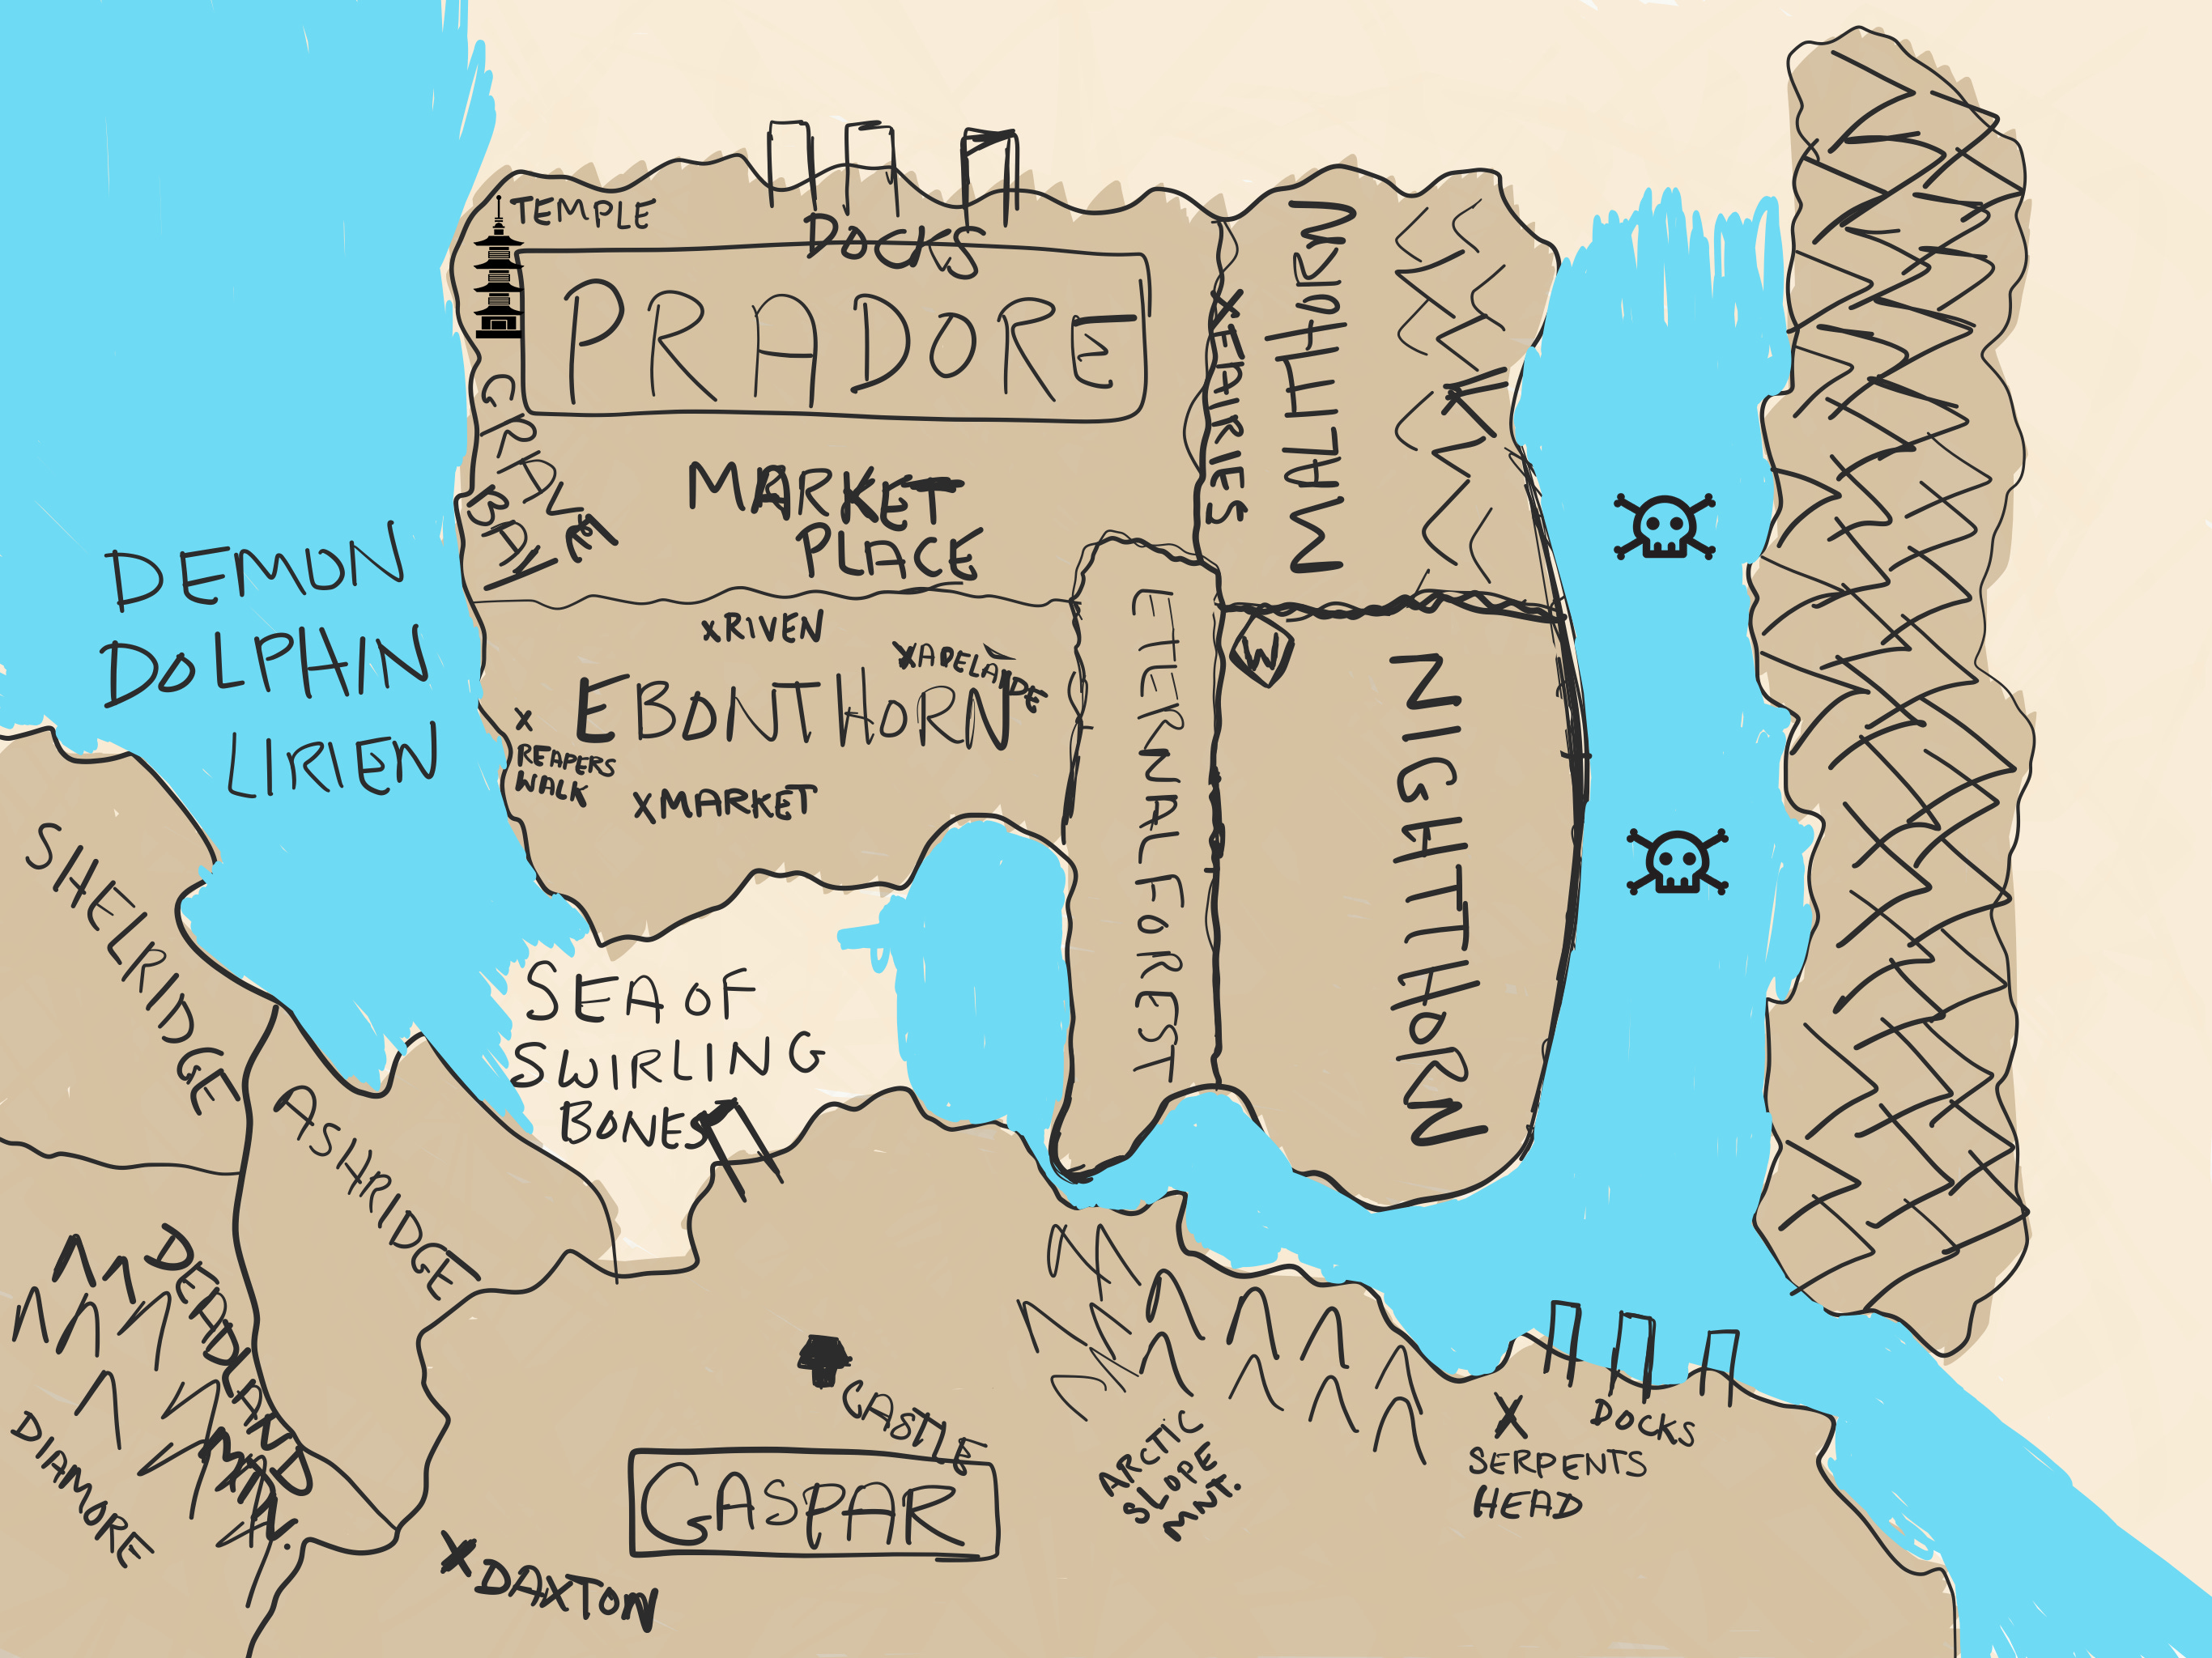 TEMPLE
DOCKS
PRADORE
GRAVE
BAY
MARKET
PLACE
X FAIRIES
MALTTHORN
X
DEMON
DOLPHIN
LIRIEN
XRIVEN
XADELAIDE
EBONTHORN
X
REAPERS
WALK
XMARKET
ETERNAL FOREST
W
NIGHTTHORN
SEA OF
SWIRLING
BONES
SHELRIDGE
ASHRIDGE
DEADLAND
MNN.
DIAMORE
CASTLE
GASPAR
XDAXTON
ARCTIC
SLOPE
MNT.
X
DOCKS
SERPENTS
HEAD